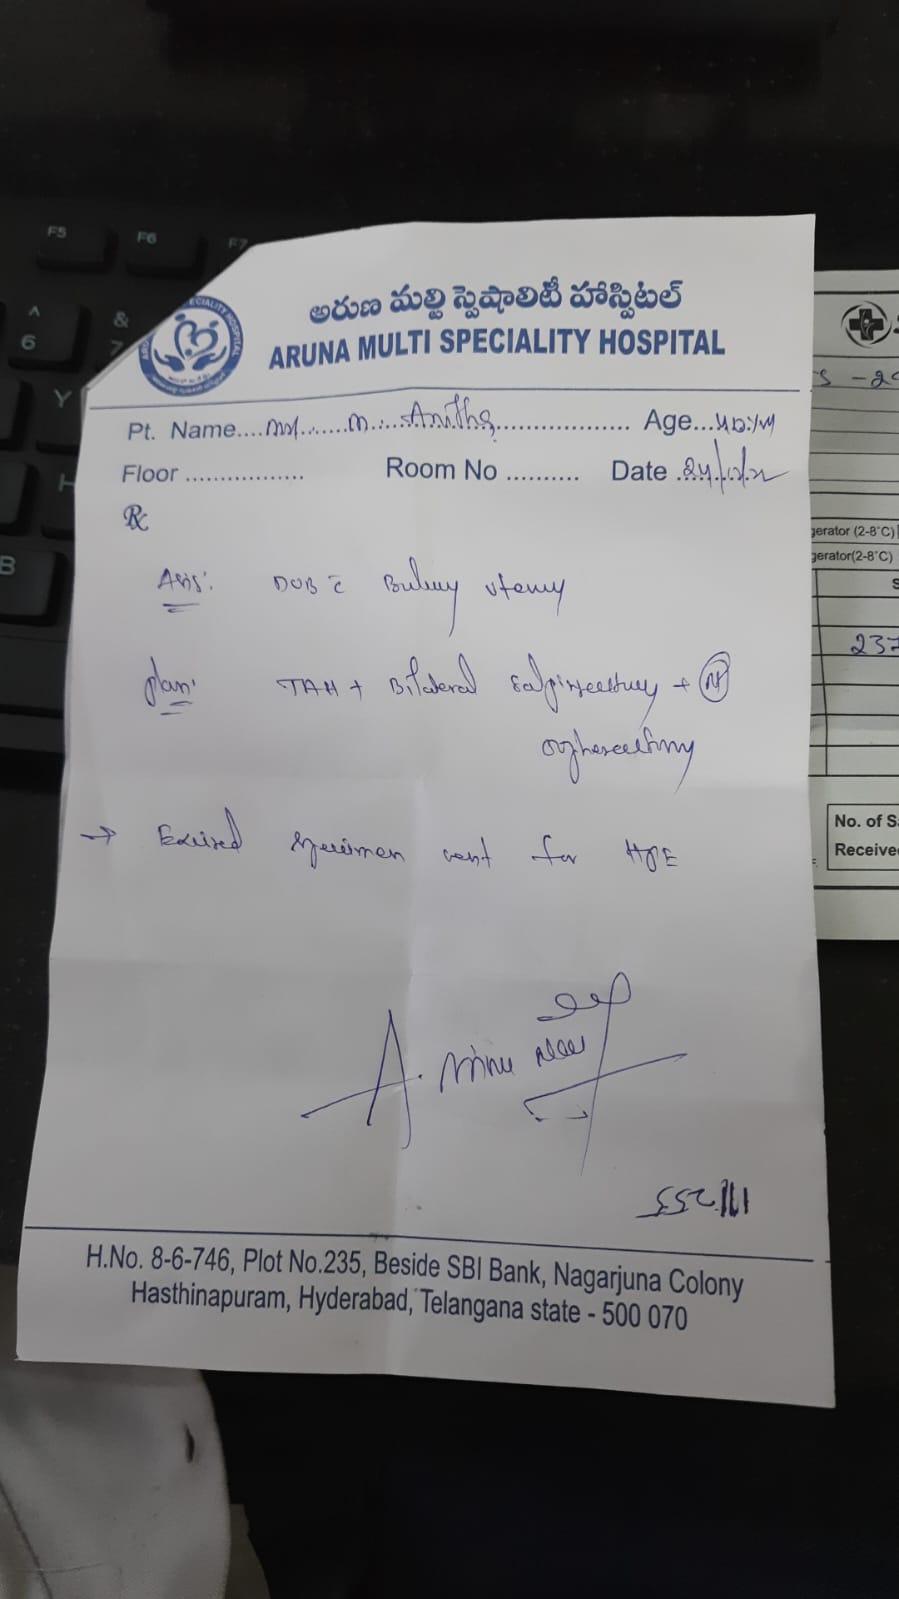 F5 F6 F7
^ 6
& 7
Y
H
B
అరుణ మల్టి స్పెషాలిటీ హాస్పిటల్
ARUNA MULTI SPECIALITY HOSPITAL
Pt. Name.... M. Anitha Age...
Floor ................. Room No .......... Date
Rx
DUB c̄ Bulky
plan: TAH + Bilateral Salpingectomy +
oophorectomy
→ Excised specimen sent for HPE
A.
H.No. 8-6-746, Plot No.235, Beside SBI Bank, Nagarjuna Colony
Hasthinapuram, Hyderabad, Telangana state - 500 070
gerator (2-8°C)
gerator(2-8°C)
237
No. of S
Receive